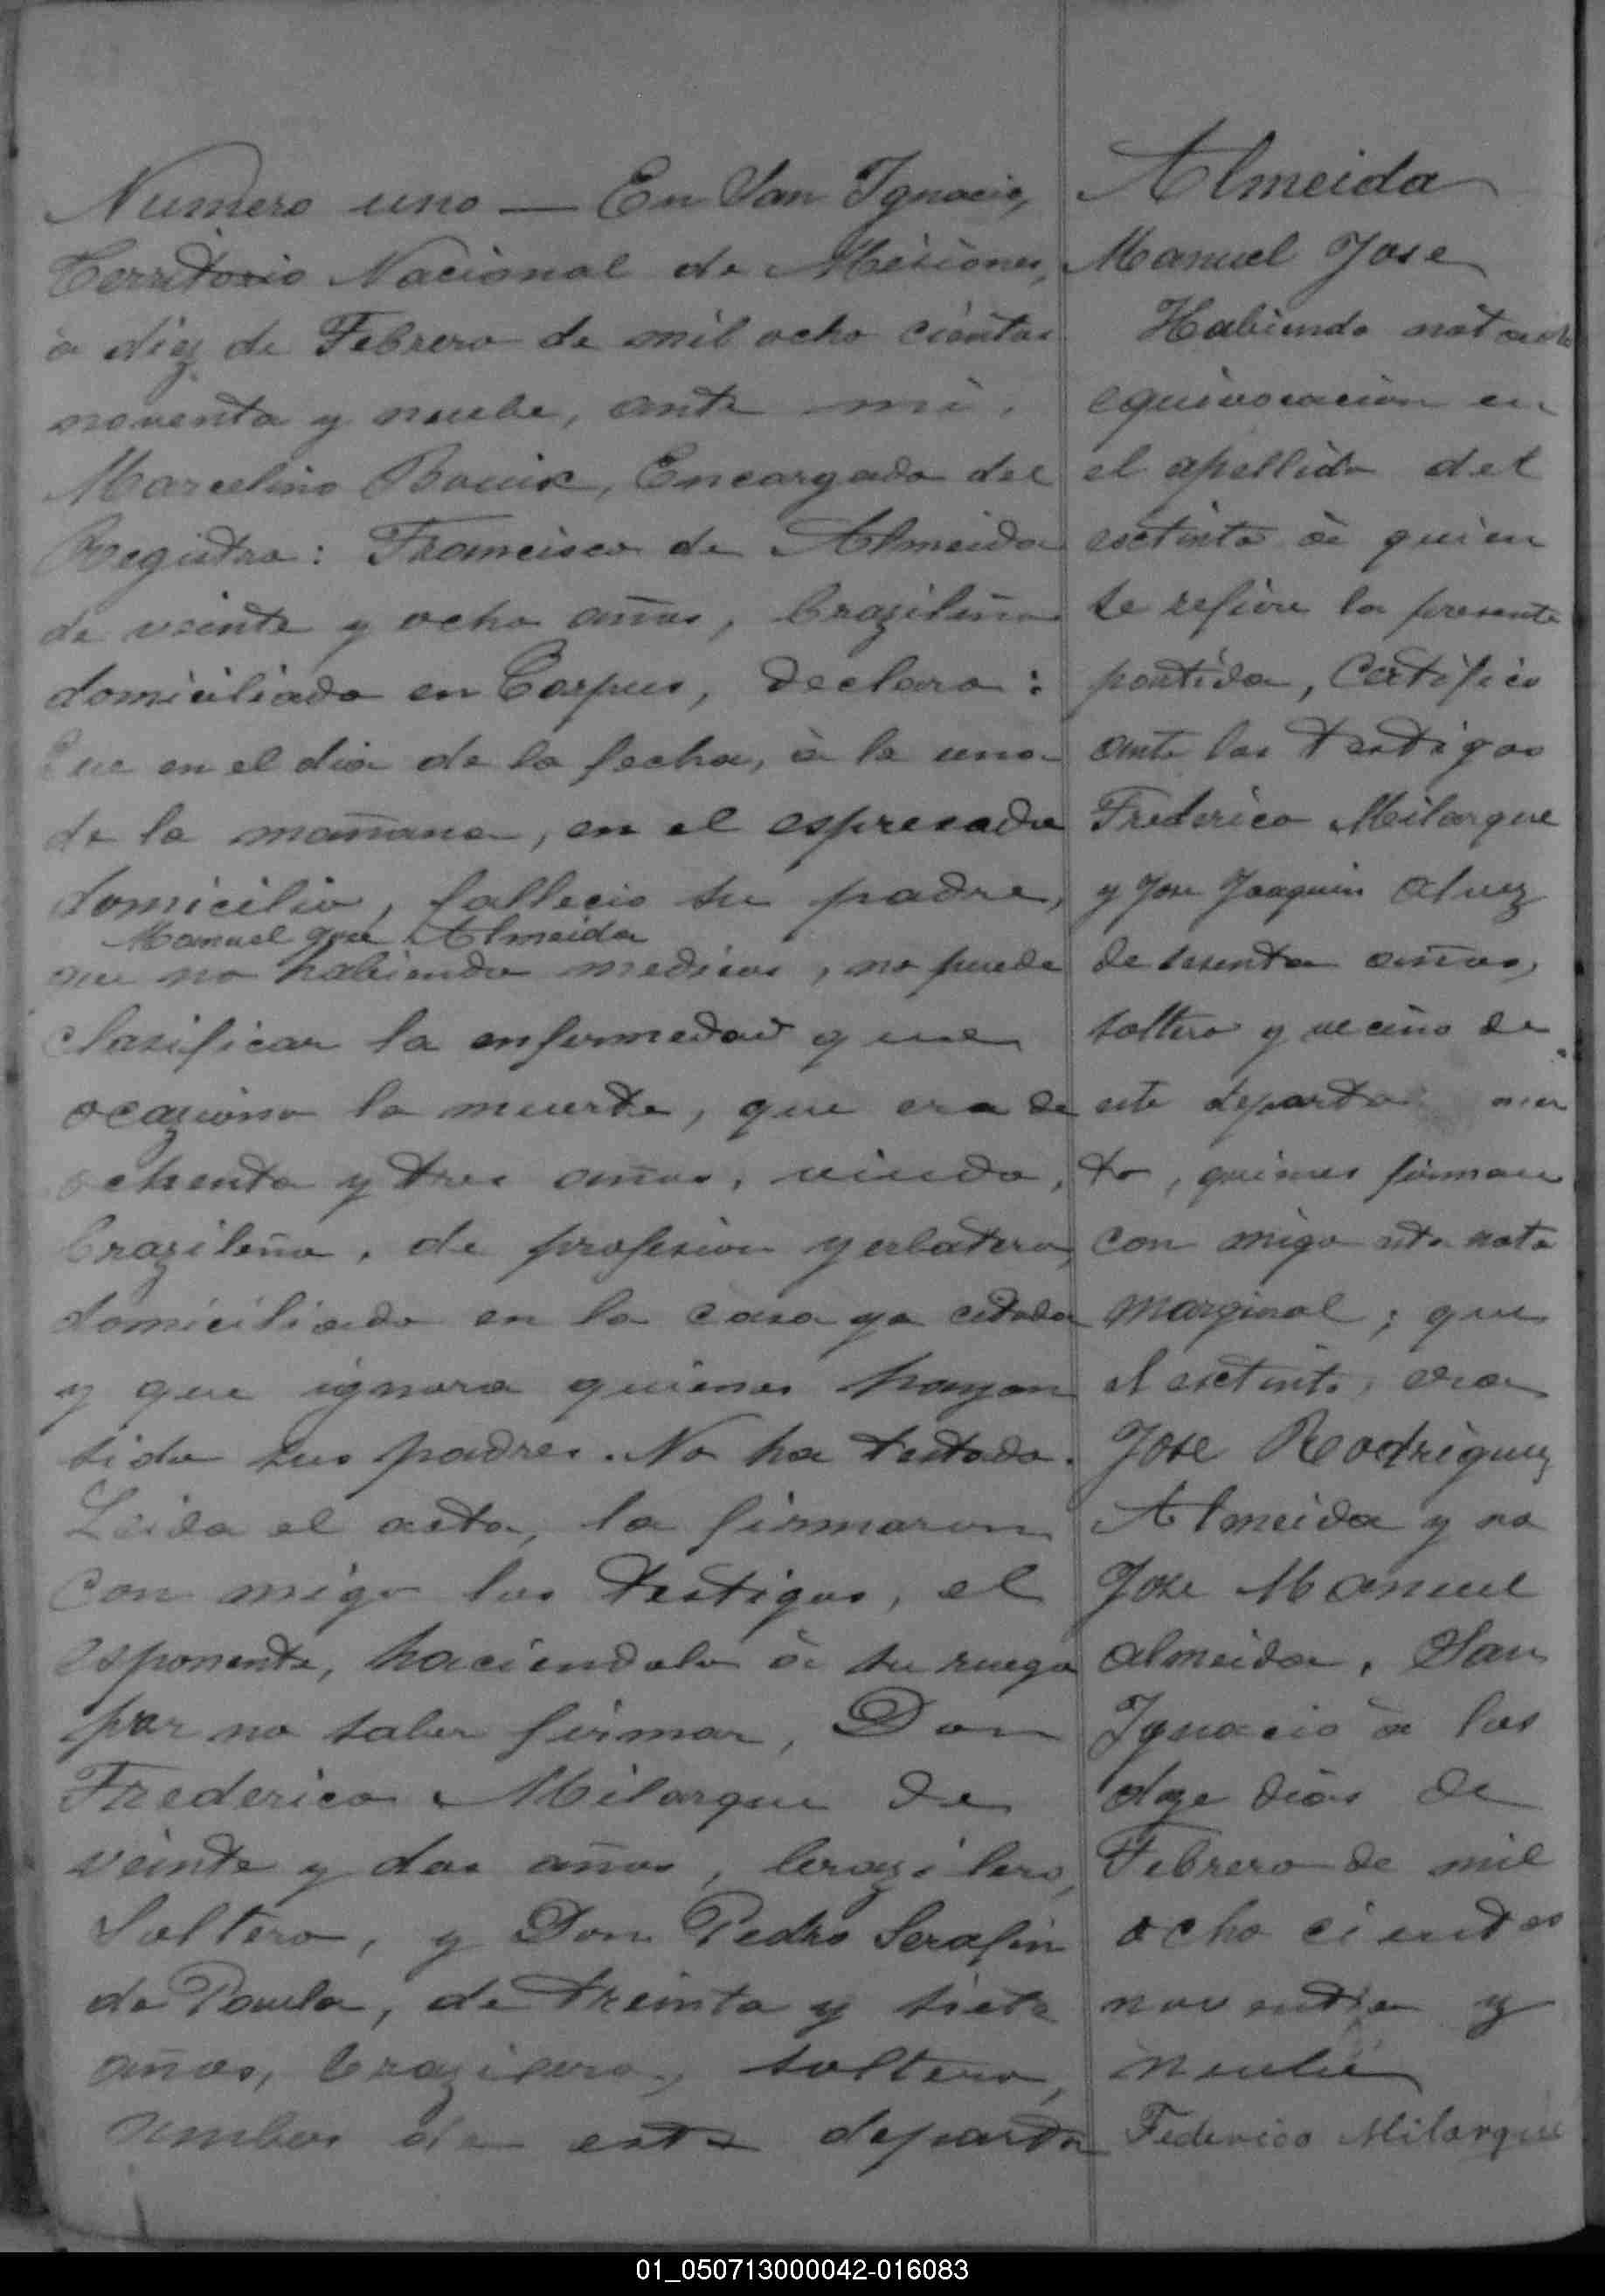 Numero uno — En San Ignacio,
Territorio Nacional de Misiones,
à diez de Febrero de mil ocho cientos
noventa y nuebe, ante mi,
Marcelino Bouix, Encargado del
Registro: Francisco de Almeida
de veinte y ocho años, brazileño
domiciliado en Corpus, declaro:
Que en el dia de la fecha, à la una
de la mañana, en el espresado
domicilio, fallecio su padre,
Manuel Jose Almeida
que no habiendo medicos, no puede
clasificar la enfermedad que
ocaziono la muerte, que era de
ochenta y tres años, viudo,
brazileño, de profesion yerbatero,
domiciliado en la casa ya citada
y que ignora quienes hayan
sido sus padres. No ha testado.
Leida el acta, la firmaron
con migo los testigos, el
esponente, haciendolo à su ruego
por no saber firmar, Don
Frederico Milarque de
veinte y dos años, brazilero,
Soltero, y Don Pedro Serafin
de Paula, de treinta y siete
años, brazilero, soltero,
ambos de este departa
Almeida
Manuel Jose
Habiendo notado
equivocacion en
el apellido del
esctinto à quien
se refiere la presente
partida, Certifico
ante los testigos
Frederico Milarque
y Jose Joaquin Alvez
de sesenta años,
soltero y vecino de
este departa men
to, quienes firman
con migo esta nota
marginal; que
el esctinto, era
Jose Rodriguez
Almeida y no
Jose Manuel
Almeida. San
Ignacio à los
doze dias de
Febrero de mil
ocho cientos
noventa y
nuebe
Federico Milarque